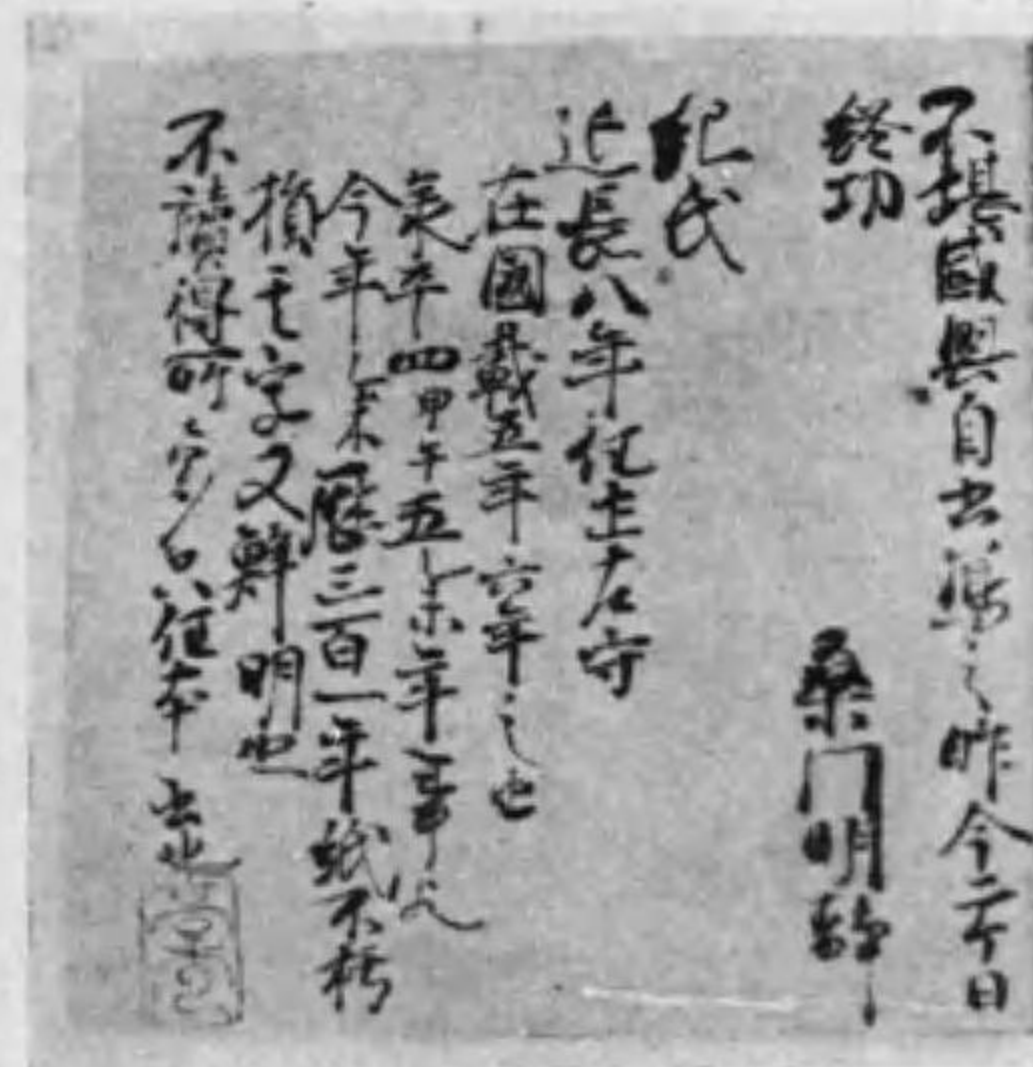 不堪感興自書寫之昨今二ケ日
終功
桑門明静
紀氏
延長八年任土左守
在國載五年六年之由
承平四甲午五乙未年事歟
今年乙未歴三百一年紙不朽
損其字又鮮明也
不讀得所々多只任本書也